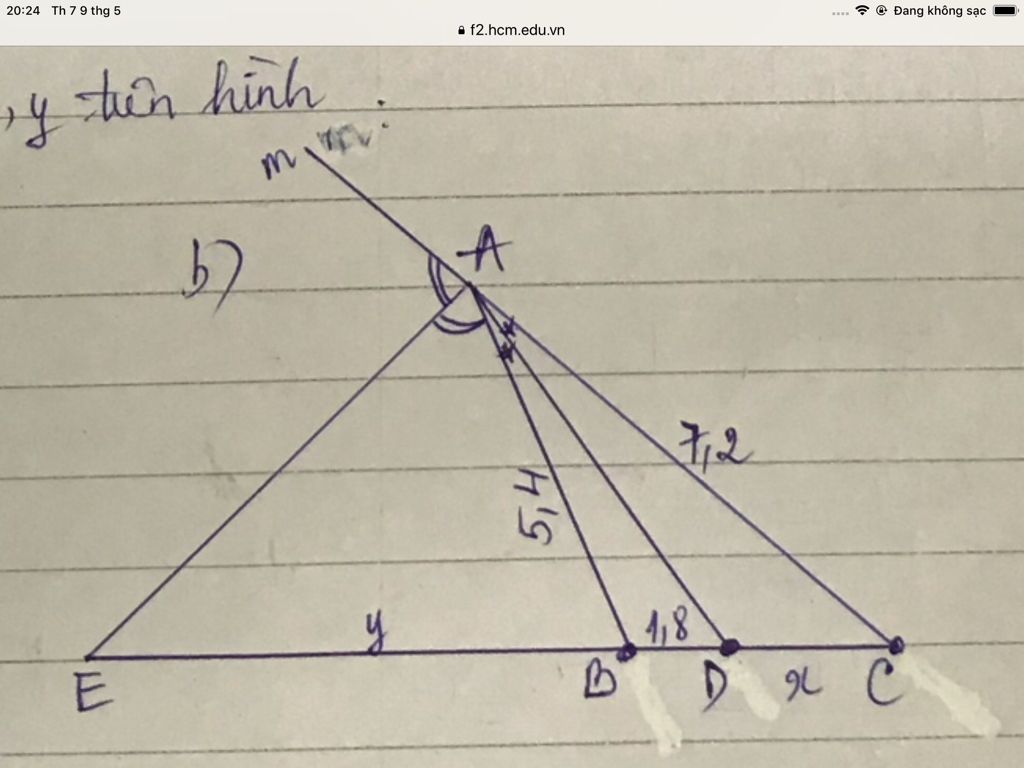 20:24 Th 7 9 thg 5
Đang không sạc
f2.hcm.edu.vn
, y trên hình :
m
A
b)
7,2
5,4
y
1,8
E
B
D
x
C